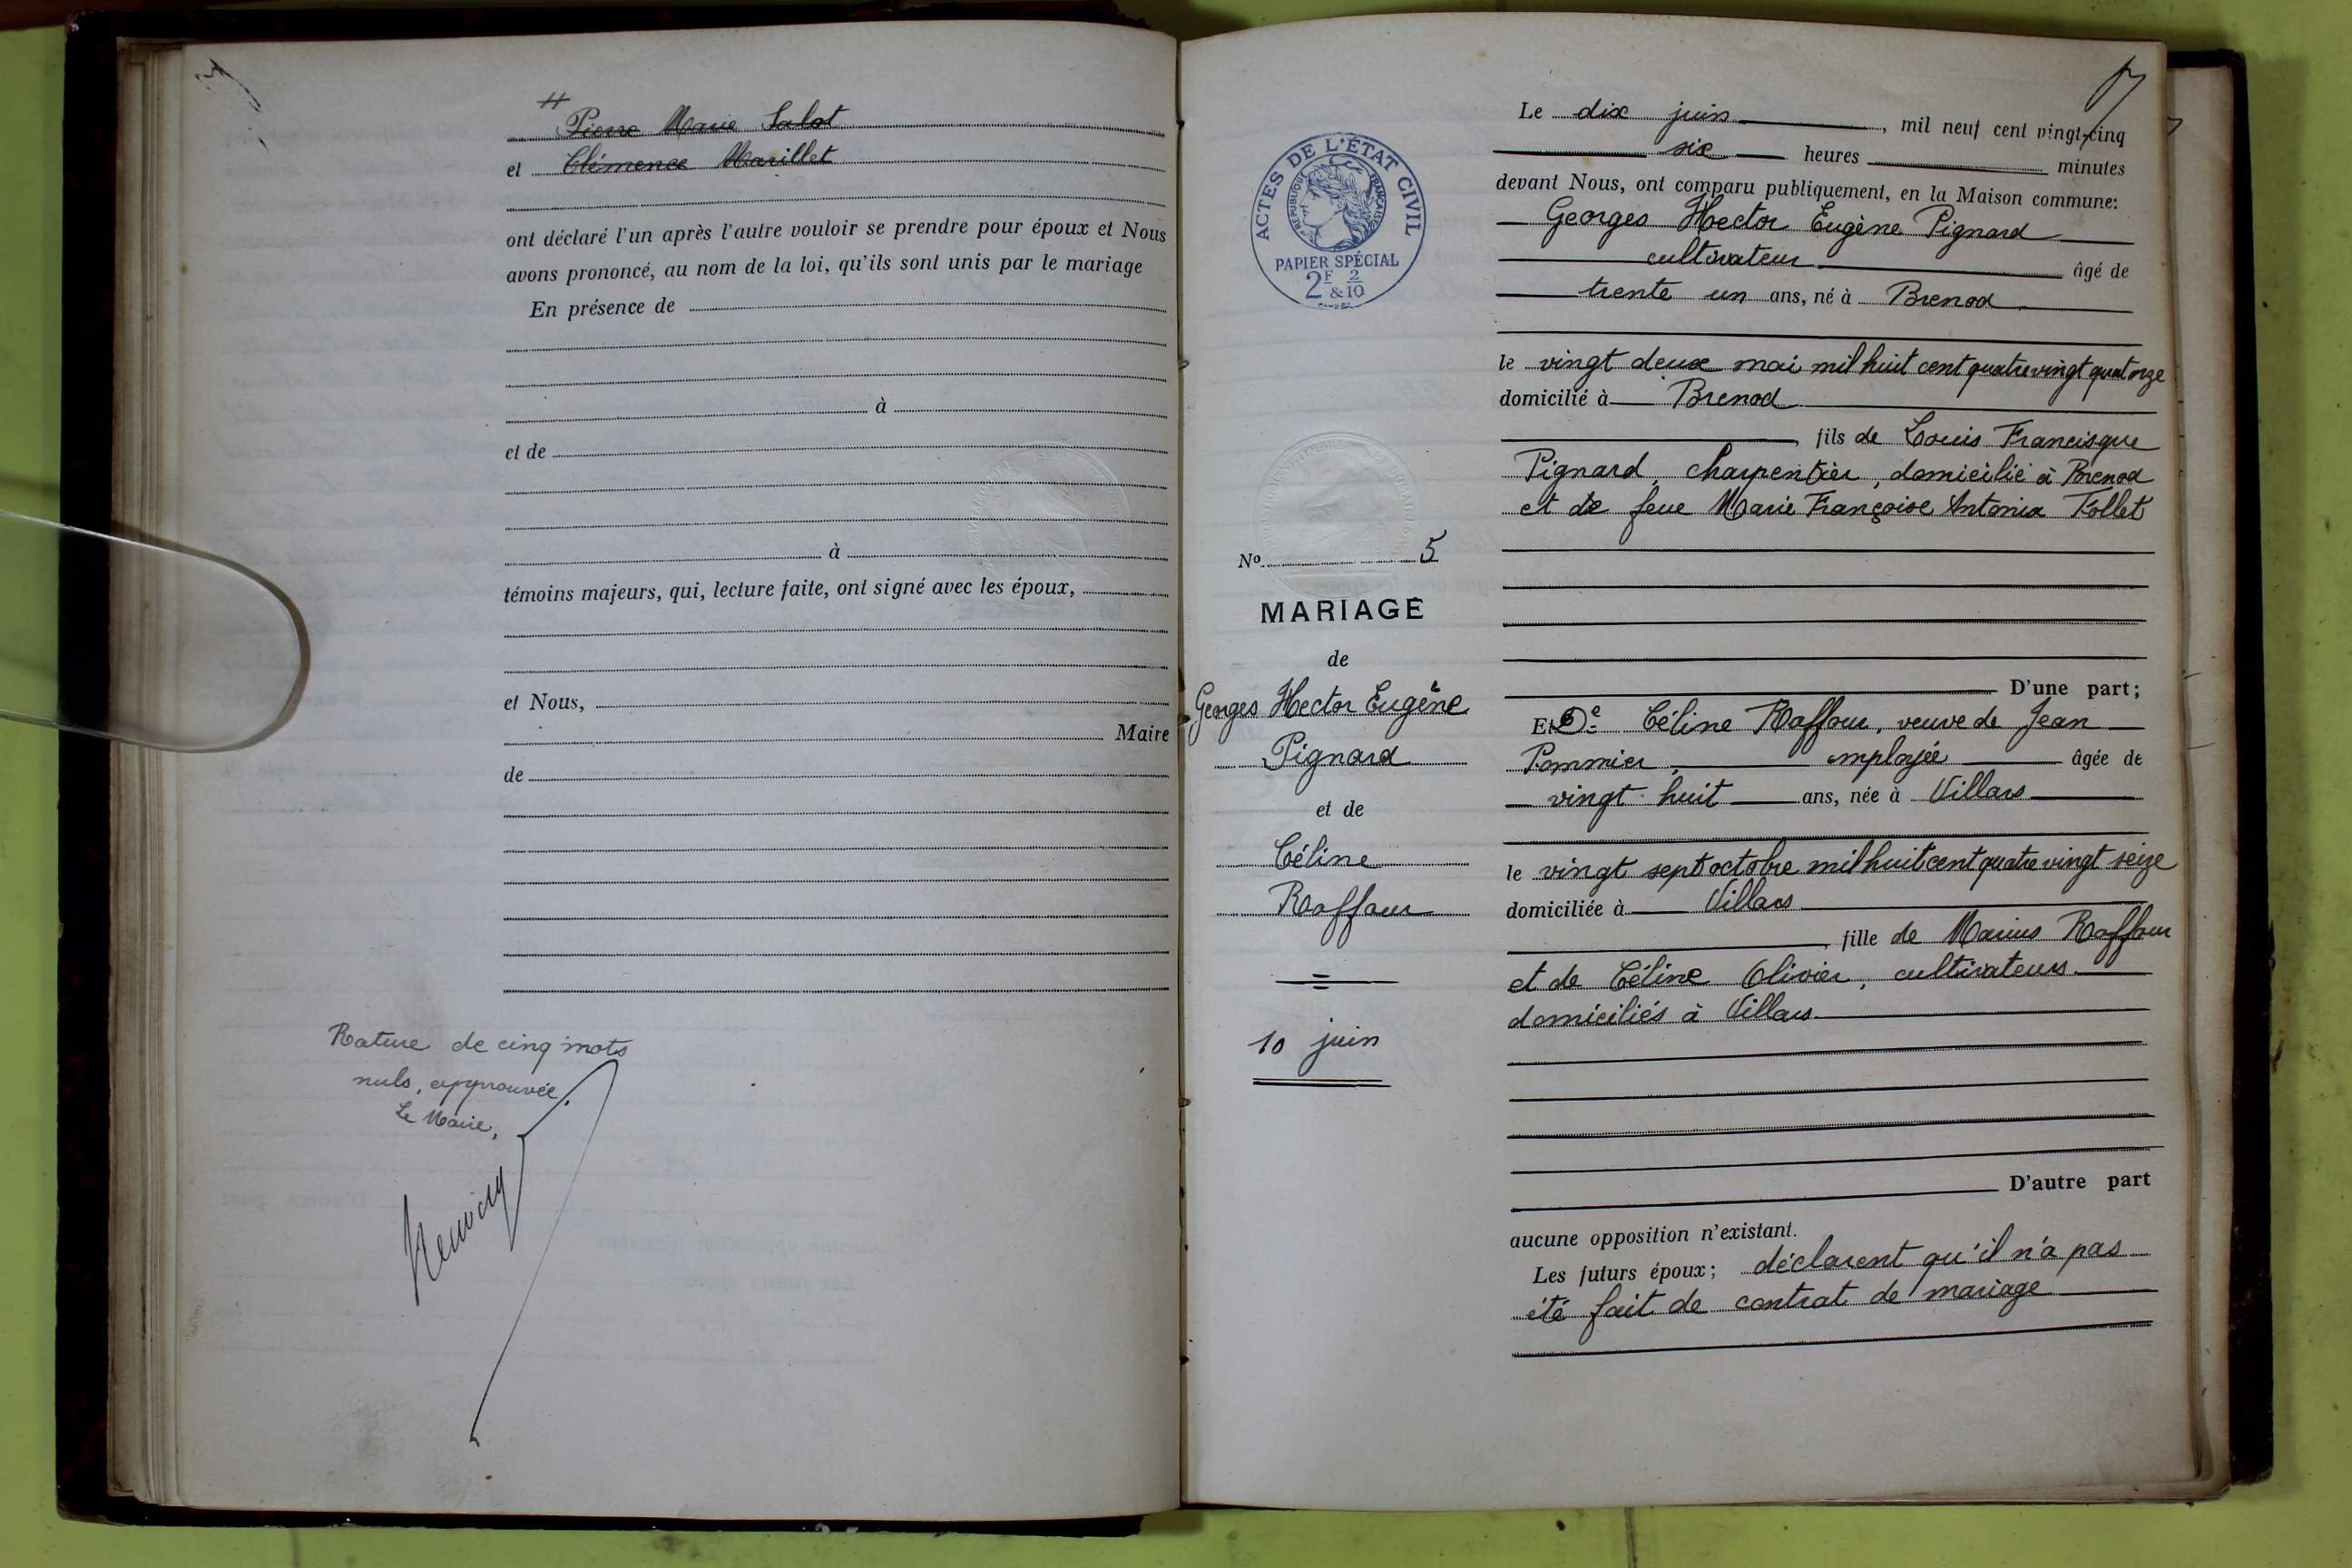 Pierre Marie Salot
et Clémence Marillet
ont déclaré l'un après l'autre vouloir se prendre pour époux et Nous
avons prononcé, au nom de la loi, qu'ils sont unis par le mariage
En présence de
à
et de
à
témoins majeurs, qui, lecture faite, ont signé avec les époux,
et Nous,
Maire
de
Rature de cinq mots
nuls, approuvée.
Le Maire,
ACTES DE L'ÉTAT CIVIL
RÉPUBLIQUE FRANÇAISE
PAPIER SPÉCIAL
2F & 2/10
No 5
MARIAGE
de
Georges Hector Eugène
Pignard
et de
Céline
Raffour
10 juin
Le dix juin, mil neuf cent vingt-cinq
six heures minutes
devant Nous, ont comparu publiquement, en la Maison commune:
Georges Hector Eugène Pignard
cultivateur âgé de
trente un ans, né à Brenod
le vingt deux mai mil huit cent quatre vingt quatorze
domicilié à Brenod
, fils de Louis Francisque
Pignard, charpentier, domicilié à Brenod
et de feue Marie Françoise Antonia Follet
D'une part;
Et De Céline Raffour, veuve de Jean
Pommier, employée âgée de
vingt huit ans, née à Villars
le vingt sept octobre mil huit cent quatre vingt seize
domiciliée à Villars
, fille de Marius Raffour
et de Céline Olivier, cultivateurs
domiciliés à Villars
D'autre part
aucune opposition n'existant.
Les futurs époux; déclarent qu'il n'a pas
été fait de contrat de mariage